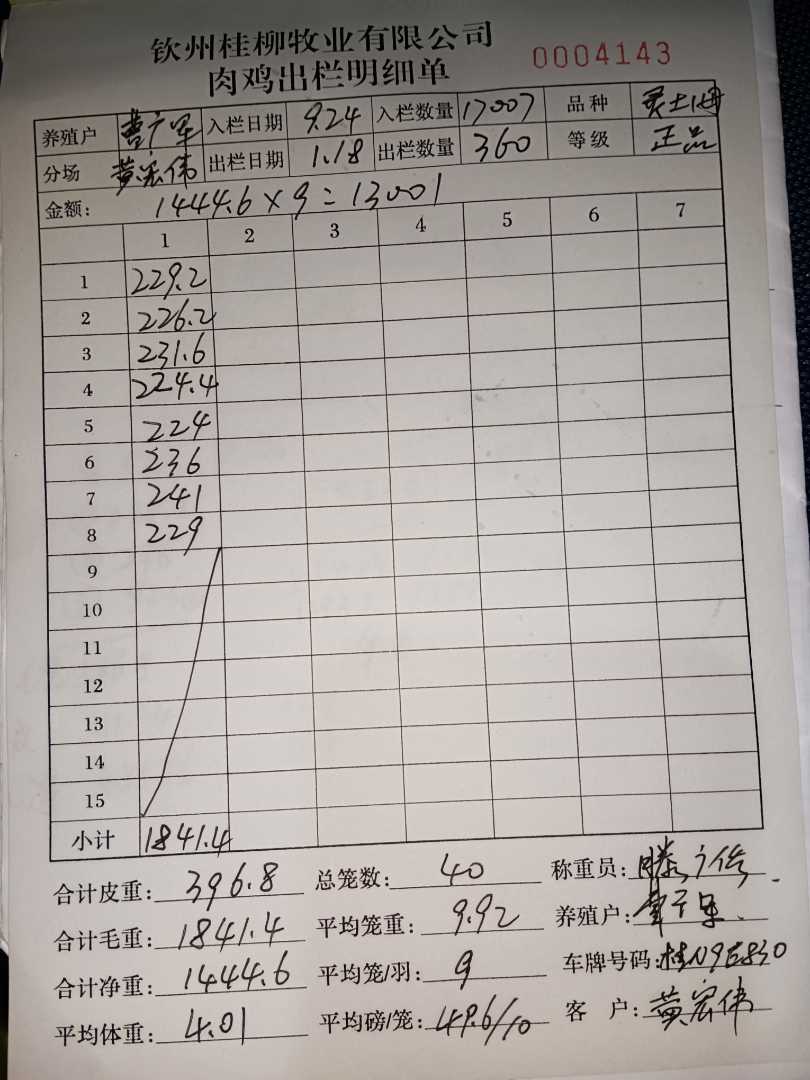 钦州桂柳牧业有限公司
肉鸡出栏明细单 0004143
养殖户 曹广军 入栏日期 9.24 入栏数量 17007 品种
分场 黄宏伟 出栏日期 1.18 出栏数量 360 等级 正品
金额: 1444.6×9=13001
1 2 3 4 5 6 7
1 229.2
2 226.2
3 231.6
4 224.4
5 224
6 236
7 241
8 229
9
10
11
12
13
14
15
小计 1841.4
合计皮重: 396.8 总笼数: 40 称重员:
合计毛重: 1841.4 平均笼重: 9.92 养殖户:
合计净重: 1444.6 平均笼/羽: 9 车牌号码:
平均体重: 4.01 平均磅/笼: 49.6/10 客户: 黄宏伟